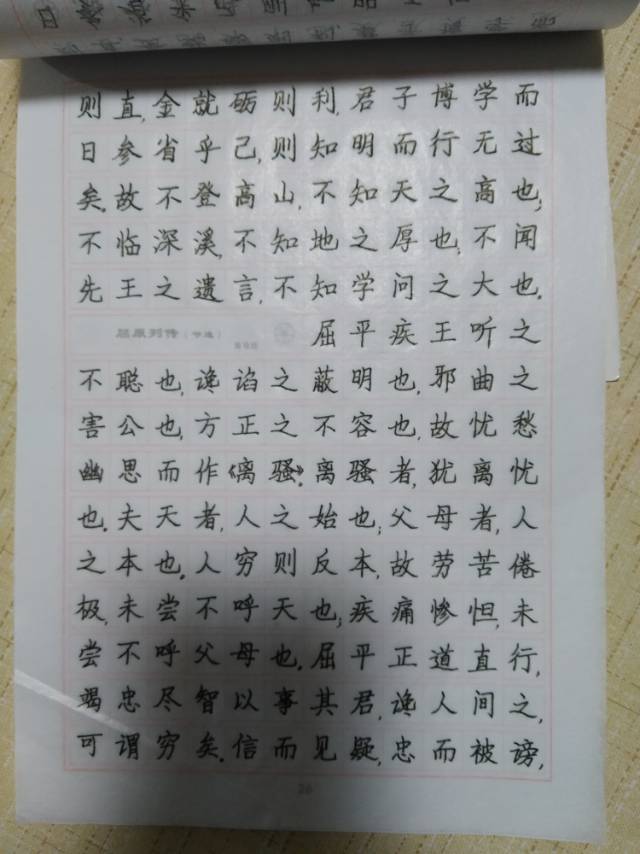 则直,金就砺则利,君子博学而
日参省乎己,则知明而行无过
矣,故不登高山,不知天之高也;
不临深溪,不知地之厚也;不闻
先王之遗言,不知学问之大也.
屈原列传(节选)
屈平疾王听之
不聪也,谗谄之蔽明也,邪曲之
害公也,方正之不容也,故忧愁
幽思而作《离骚》.离骚者,犹离忧
也.夫天者,人之始也;父母者,人
之本也.人穷则反本,故劳苦倦
极,未尝不呼天也;疾痛惨怛,未
尝不呼父母也.屈平正道直行,
竭忠尽智以事其君,谗人间之,
可谓穷矣.信而见疑,忠而被谤,
26